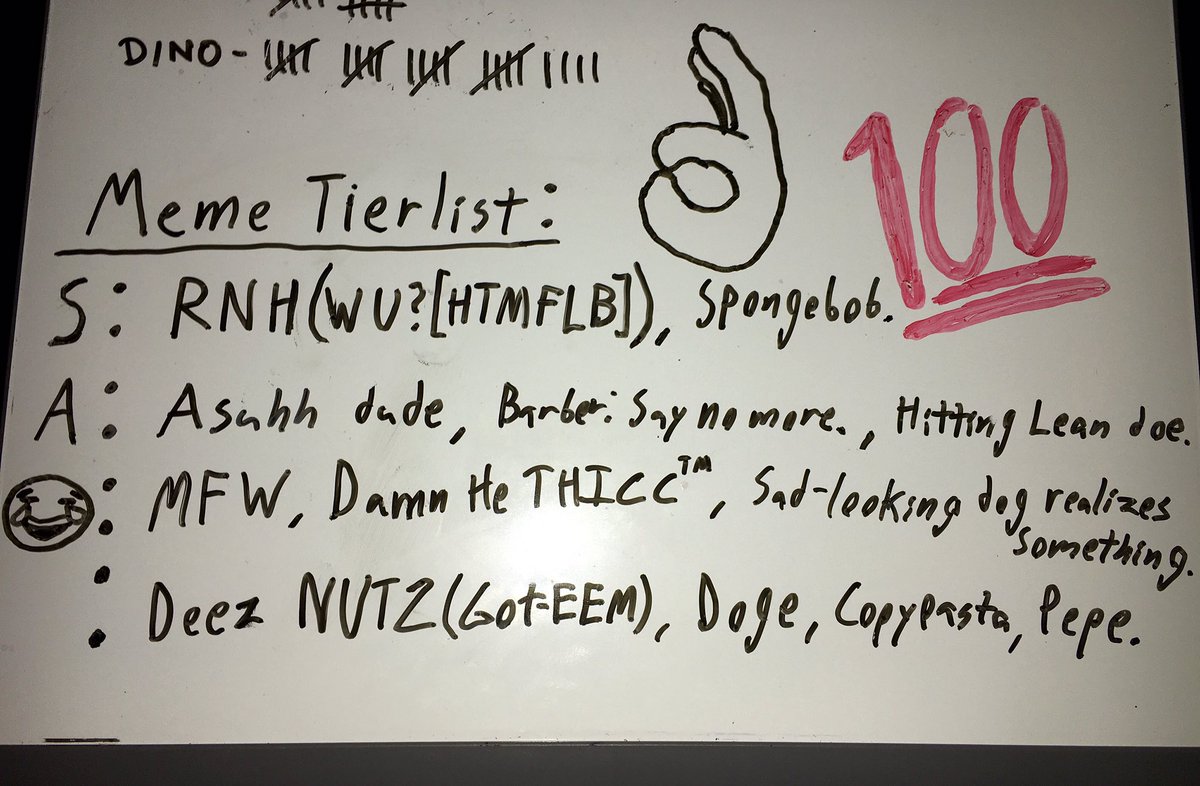 DINO -
100
Meme Tierlist:
S: RNH(WU?[HTMFLB]), Spongebob.
A: Asuhh dude, Barber: Say no more., Hitting Lean doe.
: MFW, Damn He THICC™, Sad-looking dog realizes
something.
: Deez NUTZ(Got-EEM), Doge, Copypasta, Pepe.